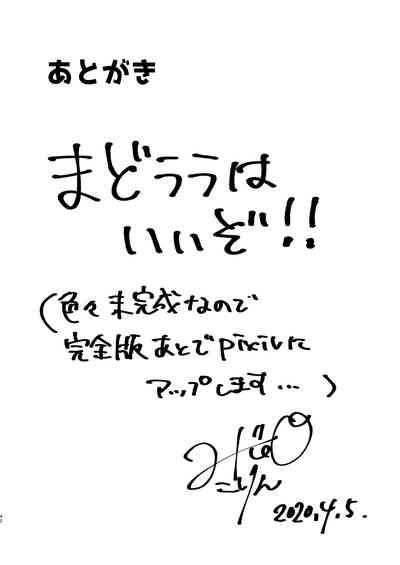 あとがき
まどううは
いいぞ!!
(色々未完成なので
完全版あとでpixivに
アップします…)
ことりん
2020.4.5.